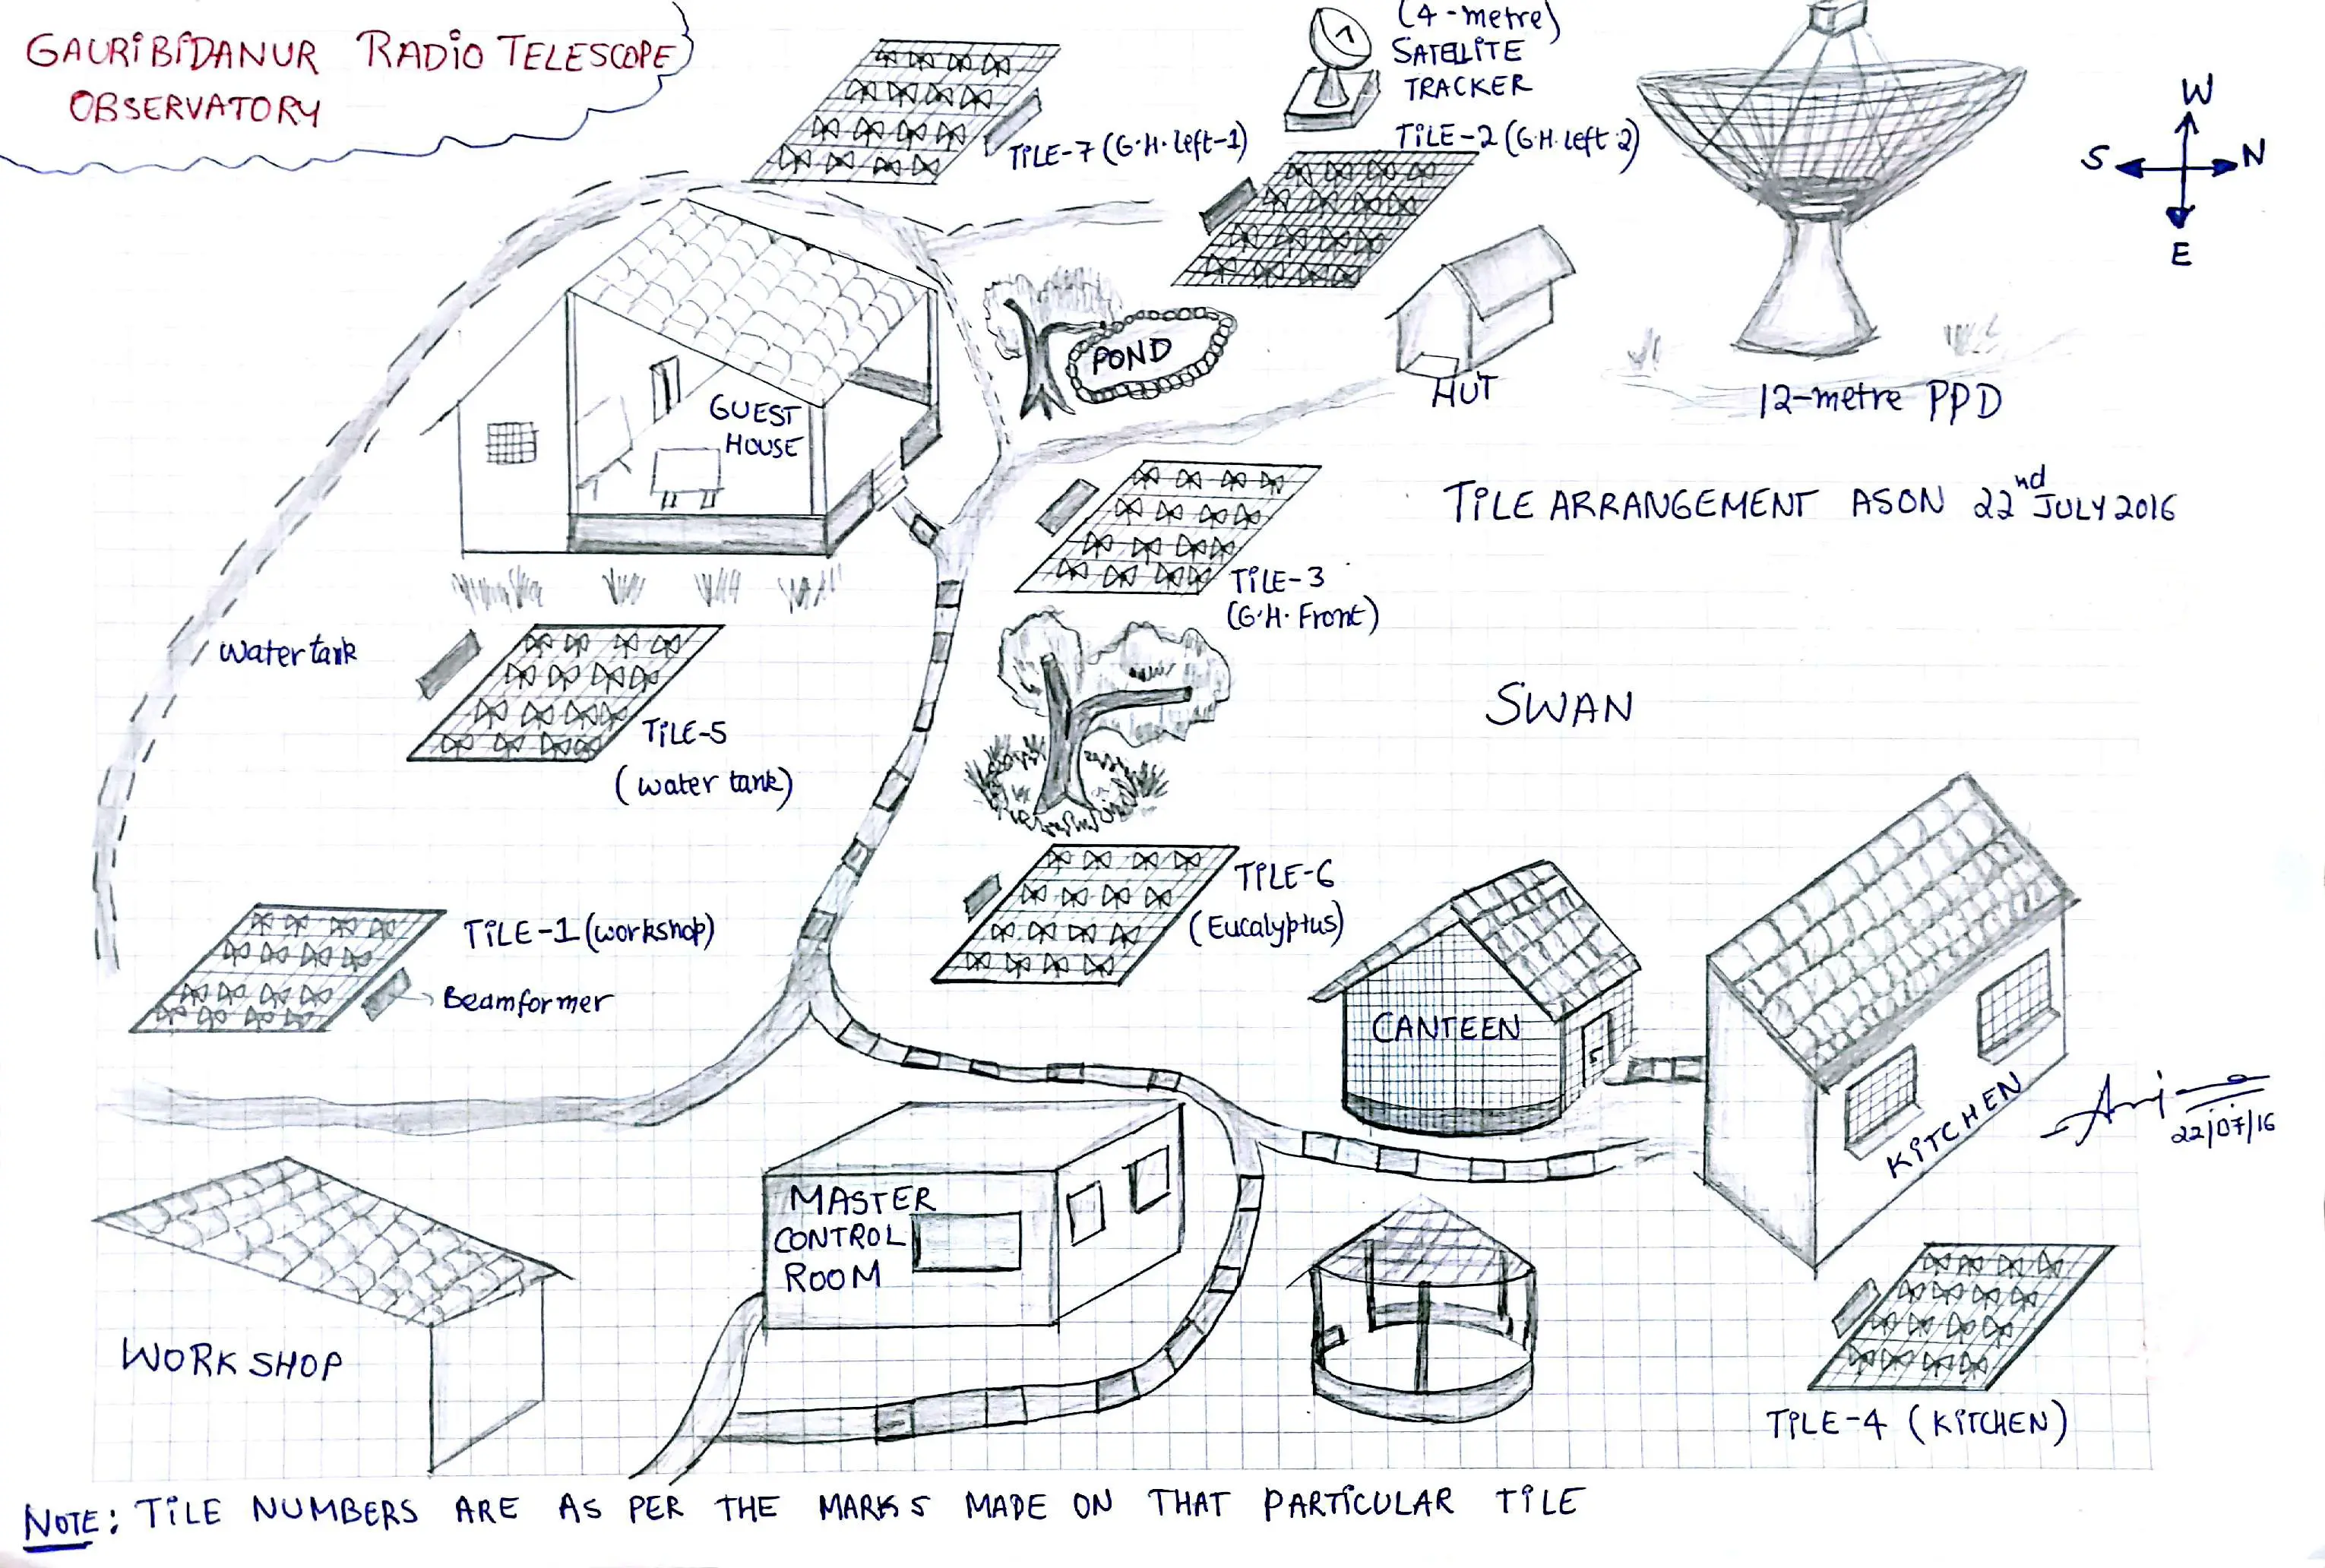 GAURIBIDANUR RADIO TELESCOPE
OBSERVATORY
(4-metre)
SATELLITE
TRACKER
TILE-7 (G.H. left-1)
TILE-2 (G.H. left 2)
W
S
N
E
POND
HUT
12-metre PPD
GUEST
HOUSE
TILE ARRANGEMENT AS ON 22nd JULY 2016
TILE-3
(G.H. Front)
Water tank
TILE-5
(water tank)
SWAN
TILE-6
(Eucalyptus)
TILE-1 (workshop)
Beamformer
CANTEEN
KITCHEN
22/07/16
MASTER
CONTROL
ROOM
WORKSHOP
TILE-4 (KITCHEN)
NOTE: TILE NUMBERS ARE AS PER THE MARKS MADE ON THAT PARTICULAR TILE